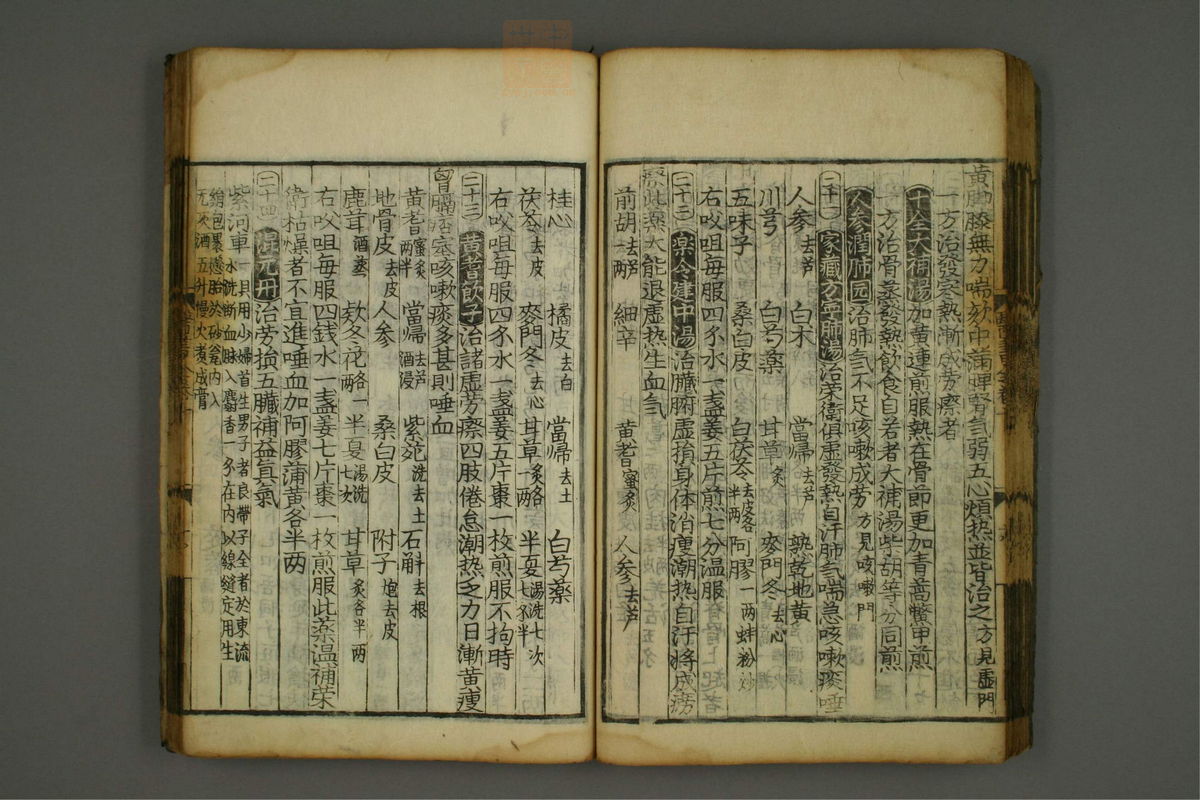 黄脚膝無力喘欬中滿脾腎氣弱五心煩热並皆治之方見虚門
一方治發寒熱漸成劳瘵者
十全大補湯加黄連煎服熱在骨節更加青蒿鱉甲煎
一方治骨蒸發熱飲食自若者大補湯柴胡等分同煎
人参潤肺园治肺气不足咳嗽成劳方見咳嗽門
家藏方寧肺湯治荣衛俱虚發熱自汗肺气喘急咳嗽痰唾
人参去芦 白术 當歸去芦 熟乾地黄
川芎 白芍薬 甘草炙 麥門冬去心
五味子 桑白皮 白茯苓去皮各半两 阿膠一两蚌粉炒
右㕮咀每服四钱水一盞姜五片煎七分温服
二十三 楽令建中湯治臟腑虚損身体消瘦潮热自汗將成痨
瘵此薬大能退虚热生血气
前胡去芦一两 細辛 黄耆蜜炙 人参去芦
桂心 橘皮去白 當歸去土 白芍薬
茯苓去皮 麥門冬去心 甘草炙各一两 半夏湯洗七次七钱半
右㕮咀每服四钱水一盞姜五片棗一枚煎服不拘時
二十三 黄耆飲子治諸虚劳瘵四肢倦怠潮热乏力日漸黄瘦
胷膈痞塞咳嗽痰多甚則唾血
黄耆蜜炙两半 當歸去芦酒浸 紫菀洗去土 石斛去根
地骨皮去皮 人参 桑白皮 附子炮去皮
鹿茸酒蒸 欵冬花各一两 半夏湯洗七次 甘草炙各半两
右㕮咀每服四錢水一盞姜七片棗一枚煎服此薬温補荣
衛枯燥者不宜進唾血加阿膠蒲黄各半两
二十四 混元丹治劳損五臟補益真氣
紫河車一具用小婦首生男子者良帶子全者於東流
水洗断血脉入麝香一钱在内以線縫定用生
絹包裹懸胎於砂瓮内入
无灰酒五升慢火煑成膏